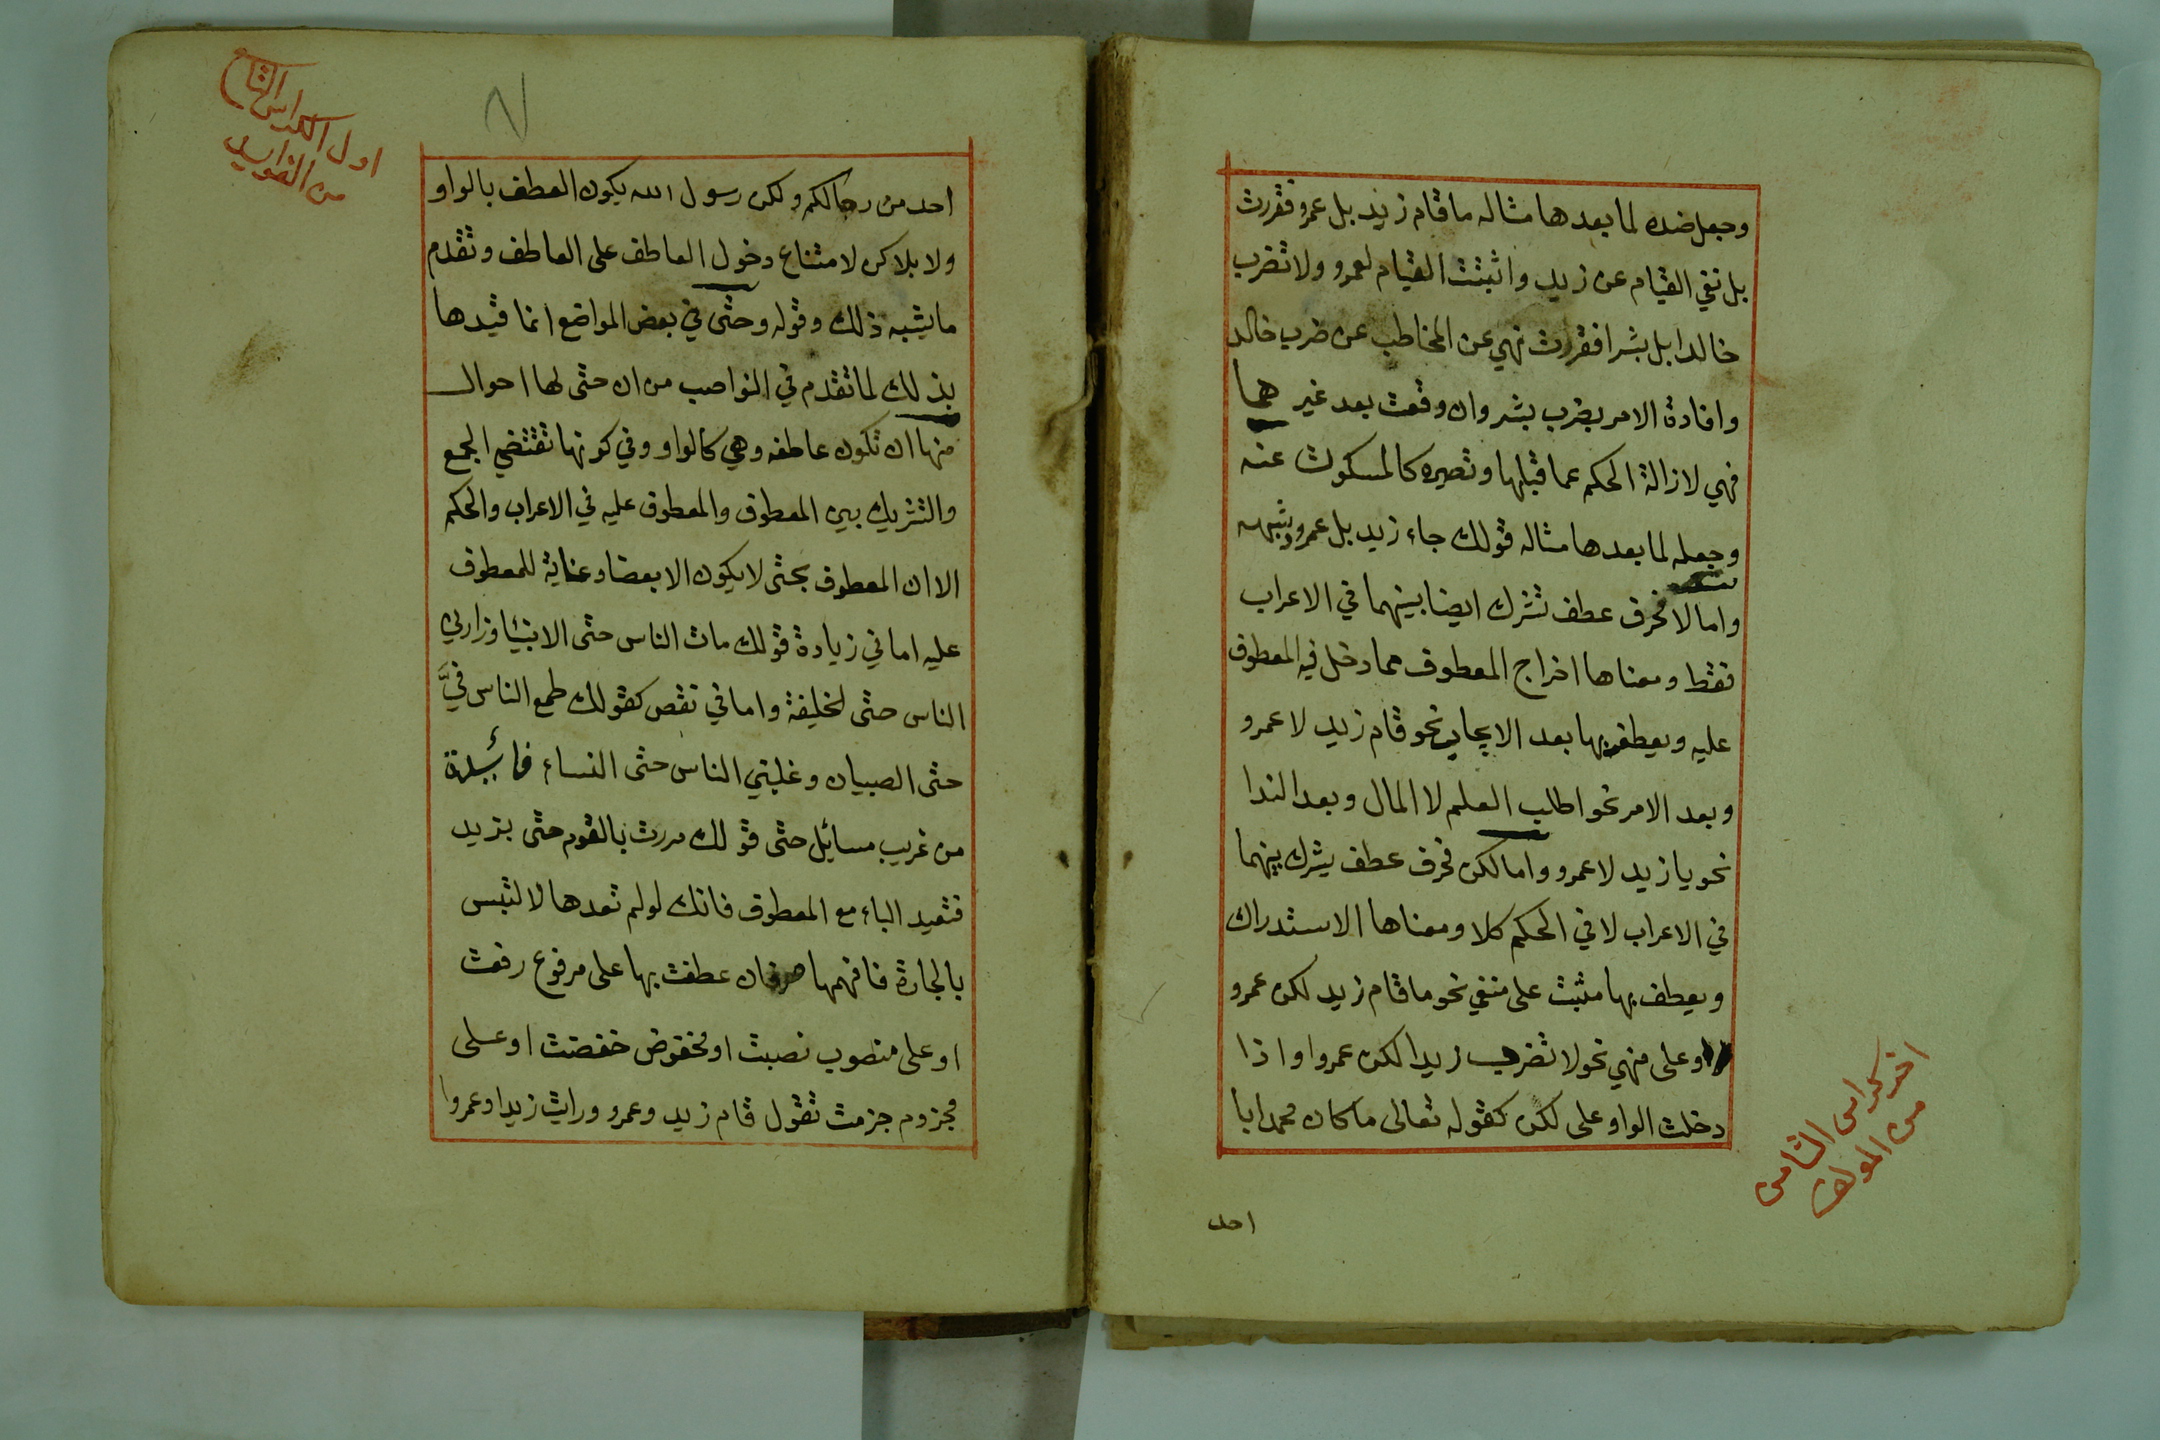 وجعل ضده لما بعدها مثاله ما قام زيد بل عمرو فقررت
بل نفي القيام عن زيد واثبتت القيام لعمرو ولا تضرب
خالدا بل بشرا فقررت نهي عن المخاطب عن ضرب خالد
وافادة الامر بضرب بشر وان وقعت بعد غير هما
فهي لازالة الحكم عما قبلها وتصيره كالمسكوت عنه
وجعله لما بعدها مثاله قولك جاء زيد بل عمرو وشبهه
واما لا فحرف عطف تشرك ايضا بينهما في الاعراب
فقط ومعناها اخراج المعطوف مما دخل فيه المعطوف
عليه ويعطف بها بعد الايجاب نحو قام زيد لا عمرو
وبعد الامر نحو اطلب العلم لا المال وبعد الندا
نحو يا زيد لا عمرو واما لكن فحرف عطف يشرك بينهما
في الاعراب لا في الحكم كلا ومعناها الاستدراك
ويعطف بها مثبت على منفي نحو ما قام زيد لكن عمرو
او على منهي نحو لا تضرب زيدا لكن عمروا واذا
دخلت الواو على لكن كقوله تعالى ما كان محمد ابا
اخر كراس الثامن
من المولف
احد
اول الكراس التاسع
من الفوايد
احد من رجالكم ولكن رسول الله يكون العطف بالواو
ولا بلاكن لامتناع دخول العاطف على العاطف وتقدم
ما يشبه ذلك وقوله وحتى في بعض المواضع انما قيدها
بذلك لما تقدم في النواصب من ان حتى لها احوال
منها ان تكون عاطفه وهي كالواو وفي كونها تقتضي الجمع
والتشريك بين المعطوف والمعطوف عليه في الاعراب والحكم
الا ان المعطوف بحتى لا يكون الا بعضا وغاية للمعطوف
عليه اما في زيادة قولك مات الناس حتى الانبيا وزارني
الناس حتى لخليفة واما في نقص كقولك طمع الناس فيَّ
حتى الصبيان وغلبني الناس حتى النساء فائدة
من غريب مسائل حتى قولك مررت بالقوم حتى بزيد
فتعيد الباء مع المعطوف فانك لو لم تعدها لالتبس
بالجارة فافهمها فان عطفت بها على مرفوع رفعت
او على منصوب نصبت او مخفوض خفضت او على
مجزوم جزمت تقول قام زيد وعمرو ورايت زيدا وعمروا